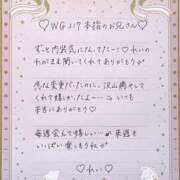 ♡WG 217 本指のお兄さん♡
ずっと内装気になってた…♡れいの
わがまま聞いてくれてありがとう♡
急な変更だったのに、沢山癒やして
くれて嬉しかったよ…♡いつも
本当にありがとう♡
毎週会えて嬉しい…♡来週も
いっぱい愛しもうね♡
♡れい♡